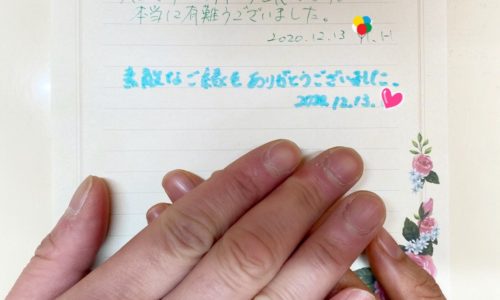 本当に有難うございました。
2020.12.13
素敵なご縁をありがとうございました。
2020.12.13.